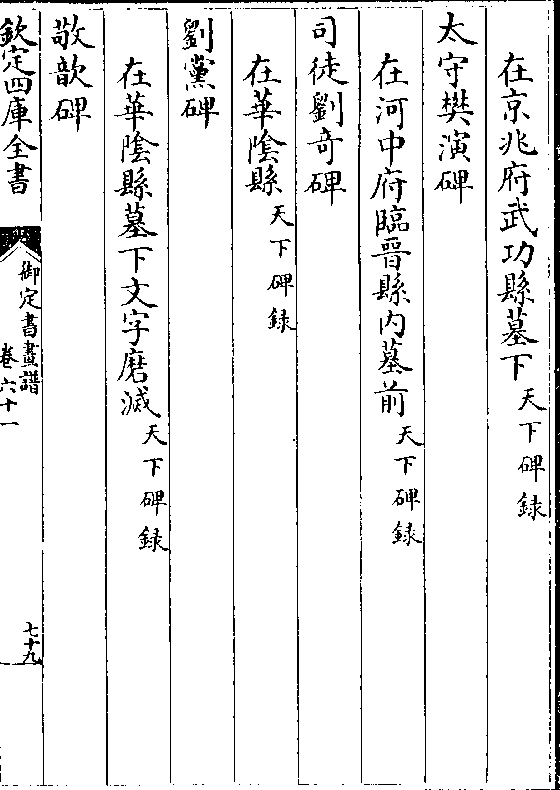 在京兆府武功縣墓下天下碑録
太守樊演碑
在河中府臨晉縣内墓前天下碑録
司徒劉奇碑
在華陰縣天下碑録
劉黨碑
在華陰縣墓下文字磨滅天下碑録
敬歆碑
欽定四庫全書
御定書畫譜
卷六十一
七十九